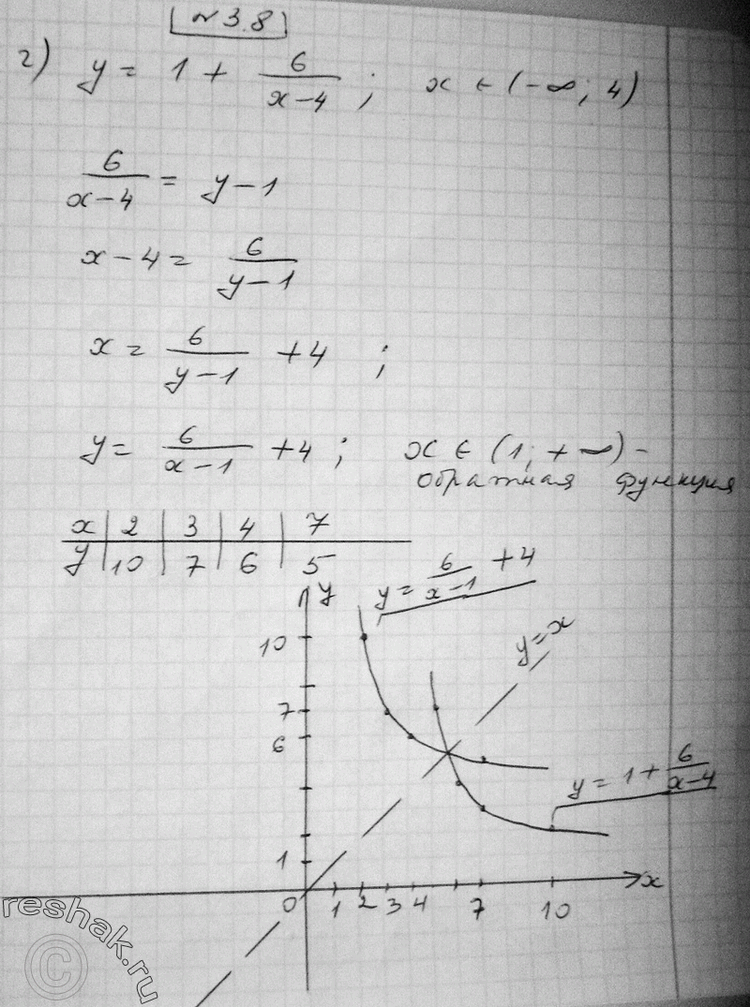 № 3.8
г) y = 1 + 6/(x-4) ; x ∈ (-∞; 4)
6/(x-4) = y-1
x-4 = 6/(y-1)
x = 6/(y-1) + 4 ;
y = 6/(x-1) + 4 ; x ∈ (1; +∞) -
обратная функция
x | 2 | 3 | 4 | 7
y | 10 | 7 | 6 | 5
y = 6/(x-1) + 4
y
y=x
10
7
6
y = 1 + 6/(x-4)
1
x
0 1 2 3 4 7 10
reshak.ru
©